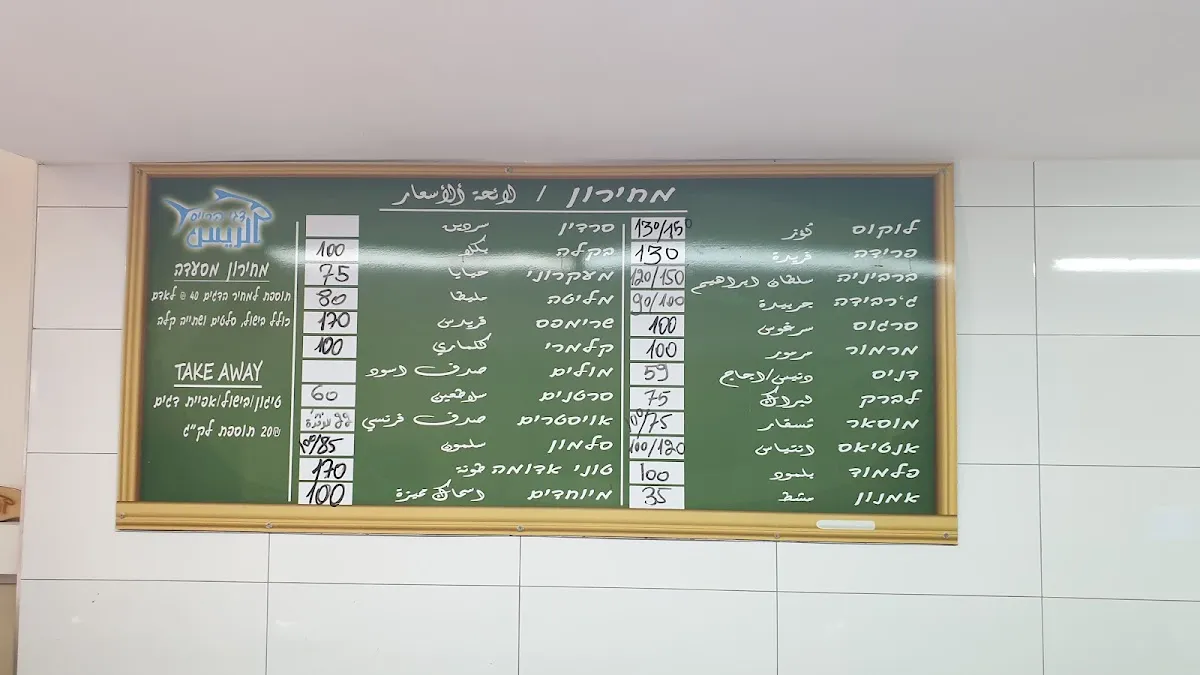 מחירון / لائحة ألأسعار
לוקוס فوز 130/150
פרידה فريدة 130
ברביניה سلطان ابراهيم 120/150
ג'רבידה جربيدة 90/100
סרגוס سرغوس 100
מרמור مرمور 100
דניס دنيس/اجاج 59
לברק لبراك 75
מוסאר مسقار 100/75
אנטיאס انتياس 100/120
פלמוד بلمود 100
אמנון مشط 35
סרדין سردين
בקלה بكله 100
מעקרוני حيايا 75
מליטה سليطا 80
שרימפס قريدس 170
קלמרי كلماري 100
מולים صدف اسود
סרטנים سلاطعين 60
אויסטרים صدف فرنسي
סלמון سلمون 100/85
טוני אדומה طونة 170
מיוחדים اسماك مميزة 100
דגי הריס
الريس
מחירון מסעדה
תוספת למחיר הדגים 40 ₪ לאדם
כולל בישול, סלטים ושתייה קלה
TAKE AWAY
טיגון/בישול/אפיית דגים
20₪ תוספת לק"ג